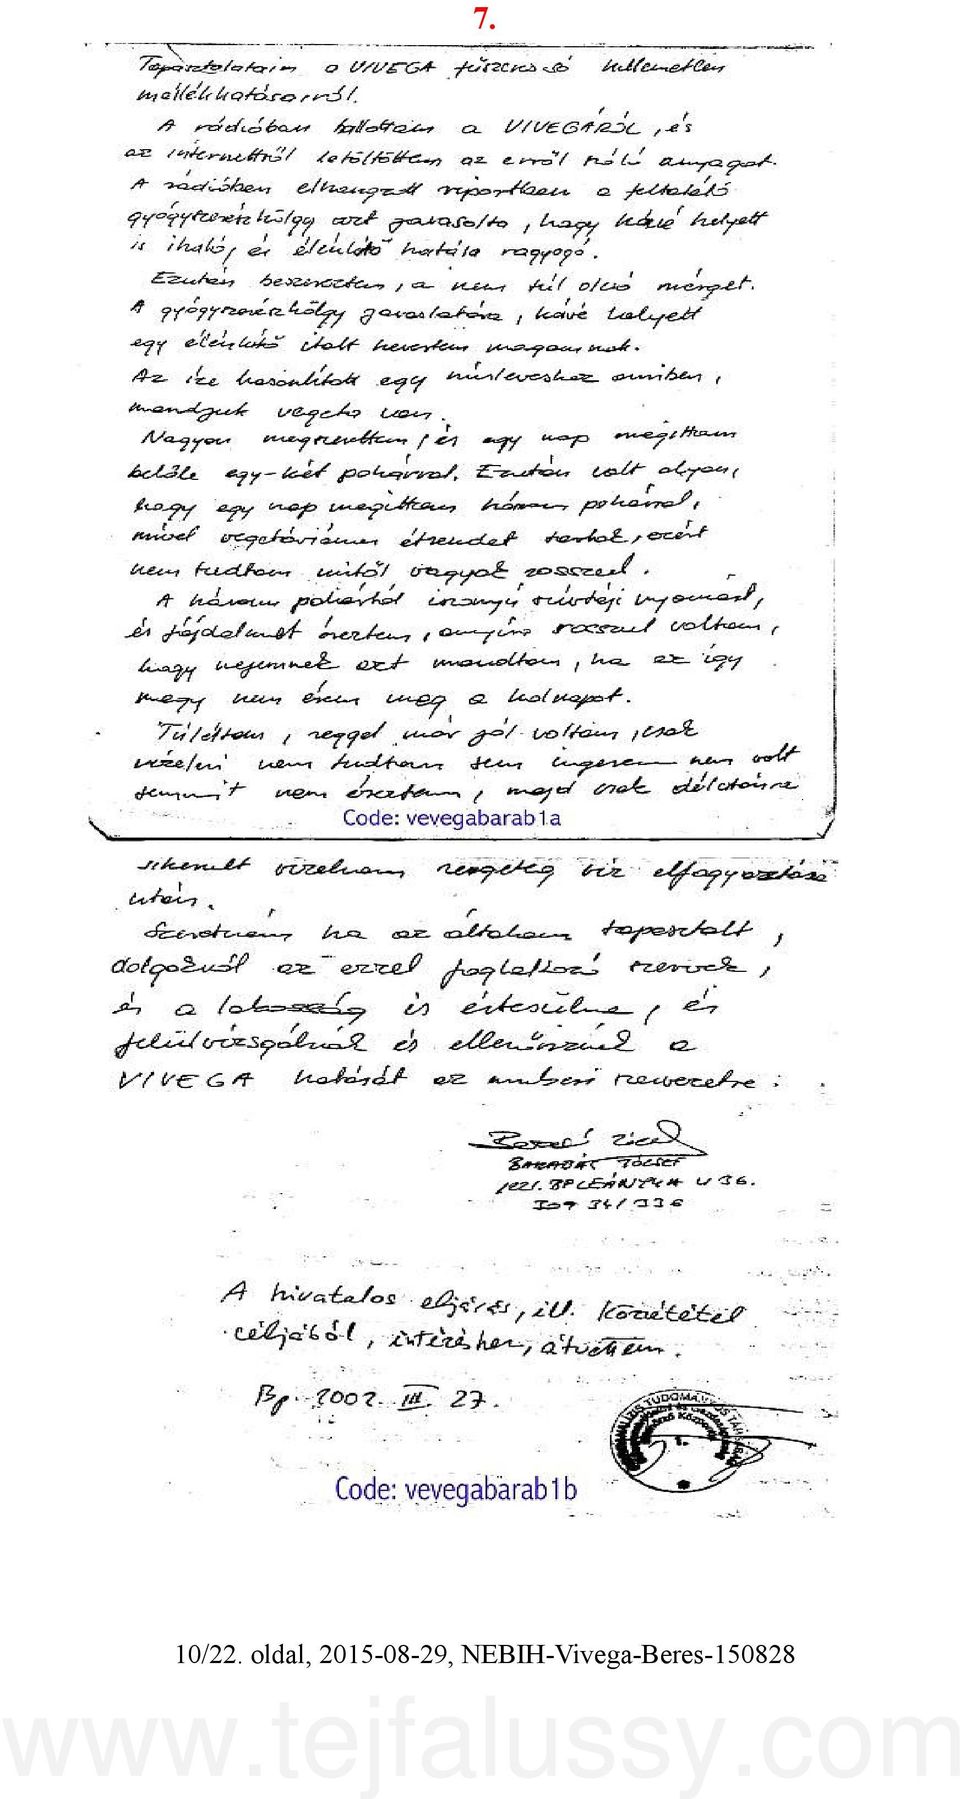 7.
Tapasztalataim a VIVEGA fűszersó kellemetlen
mellékhatásairól.
A rádióban hallottam a VIVEGÁRÓL, és
az internettről letöltöttem az erről szóló anyagot.
A rádióban elhangzott riportban a feltaláló
gyógyszerészhölgy azt javasolta, hogy kávé helyett
is iható, és élénkítő hatása ragyogó.
Ezután beszereztem, a nem túl olcsó mérget.
A gyógyszerészhölgy javaslatára, kávé helyett
egy élénkítő italt kevertem magamnak.
Az íze hasonlított egy húsleveshez amiben,
mondjuk vegeta van.
Nagyon megszerettem, és egy nap megittam
belőle egy-két pohárral. Ezután volt olyan,
hogy egy nap megittam három pohárral,
mivel vegetáriánus étrendet tartok, ezért
nem tudtam mitől vagyok rosszul.
A három pohártól iszonyú szívtáji nyomást,
és fájdalmat éreztem, annyira rosszul voltam,
hogy nejemnek azt mondtam, ha ez így
megy nem érem meg a holnapot.
Túléltem, reggel már jól voltam, csak
vizelni nem tudtam sem ingerem nem volt
semmit nem éreztem, majd csak délutánra
Code: vevegabarab1a
sikerült vizelnem rengeteg víz elfogyasztása
után.
Szeretném ha az általam tapasztalt,
dolgoknál az ezzel foglalkozó szervek,
és a lakosság is értesülne, és
felülvizsgálnák és ellenőriznék a
VIVEGA hatását az emberi szervezetre.
BARABÁS JÓZSEF
1221. BP LEÁNYKA U 36.
34/336
A hivatalos eljárás, ill. közzététel
céljából, intézésher, átvettem.
Bp. 2002. III. 27.
TUDOMÁNYOS TÁRSASÁG
1.
Code: vevegabarab1b
10/22. oldal, 2015-08-29, NEBIH-Vivega-Beres-150828
www.tejfalussy.com